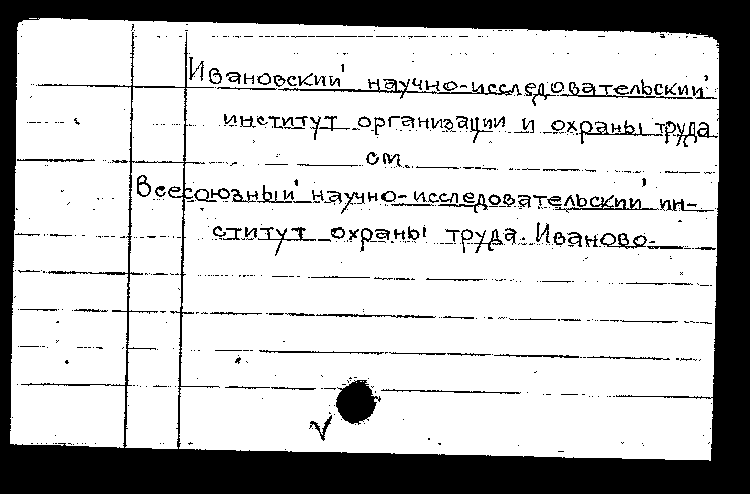 Ивановский научно-исследовательский
институт организации и охраны труда
см.
Всесоюзный научно-исследовательский ин-
ститут охраны труда. Иваново.
V